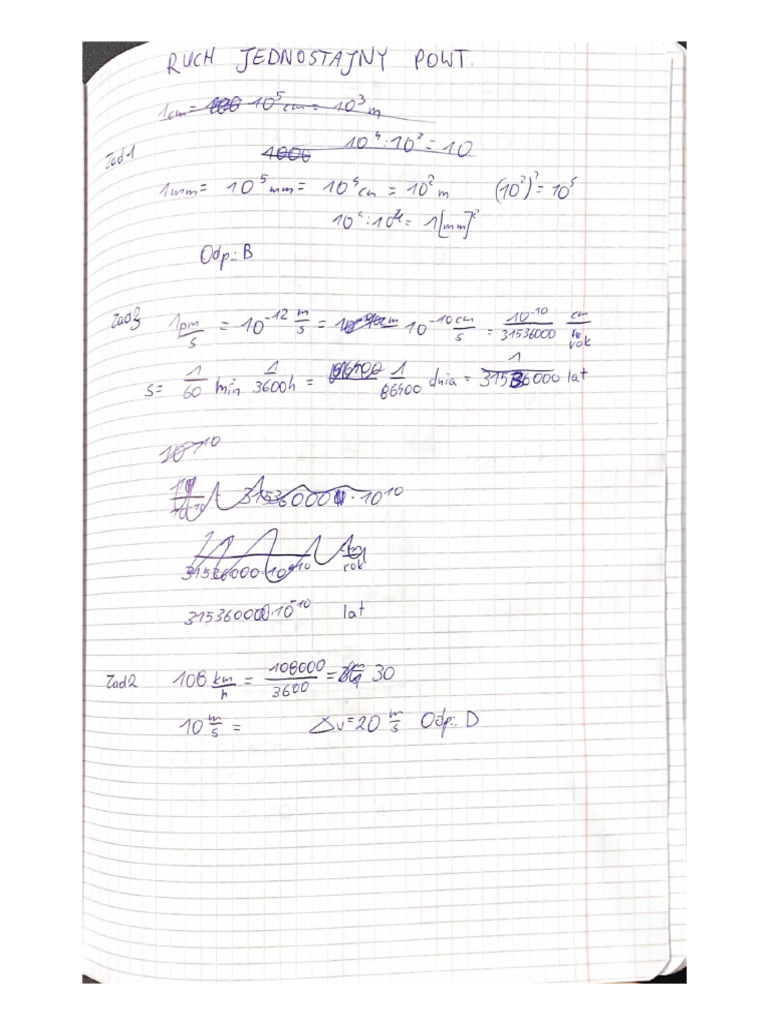 RUCH JEDNOSTAJNY POWT.
1cm = 10⁵ cm = 10³ m
Zad1 4000 10⁴:10² = 10
1mm = 10⁵ mm = 10⁴ cm = 10² m (10²)² = 10⁵
10⁴:10⁴ = 1[mm]²
Odp.: B
Zad3 1 pm/s = 10⁻¹² m/s = 10⁻¹⁰ cm/s = 10⁻¹⁰/31536000 cm/rok
s = 1/60 min 1/3600 h = 1/86400 dnia = 1/31536000 lat
10⁻¹⁰
31536000 · 10¹⁰
31536000·10⁻¹⁰ rok
31536000·10⁻¹⁰ lat
Zad2 108 km/h = 108000/3600 = 30
10 m/s = Δv = 20 m/s Odp.: D